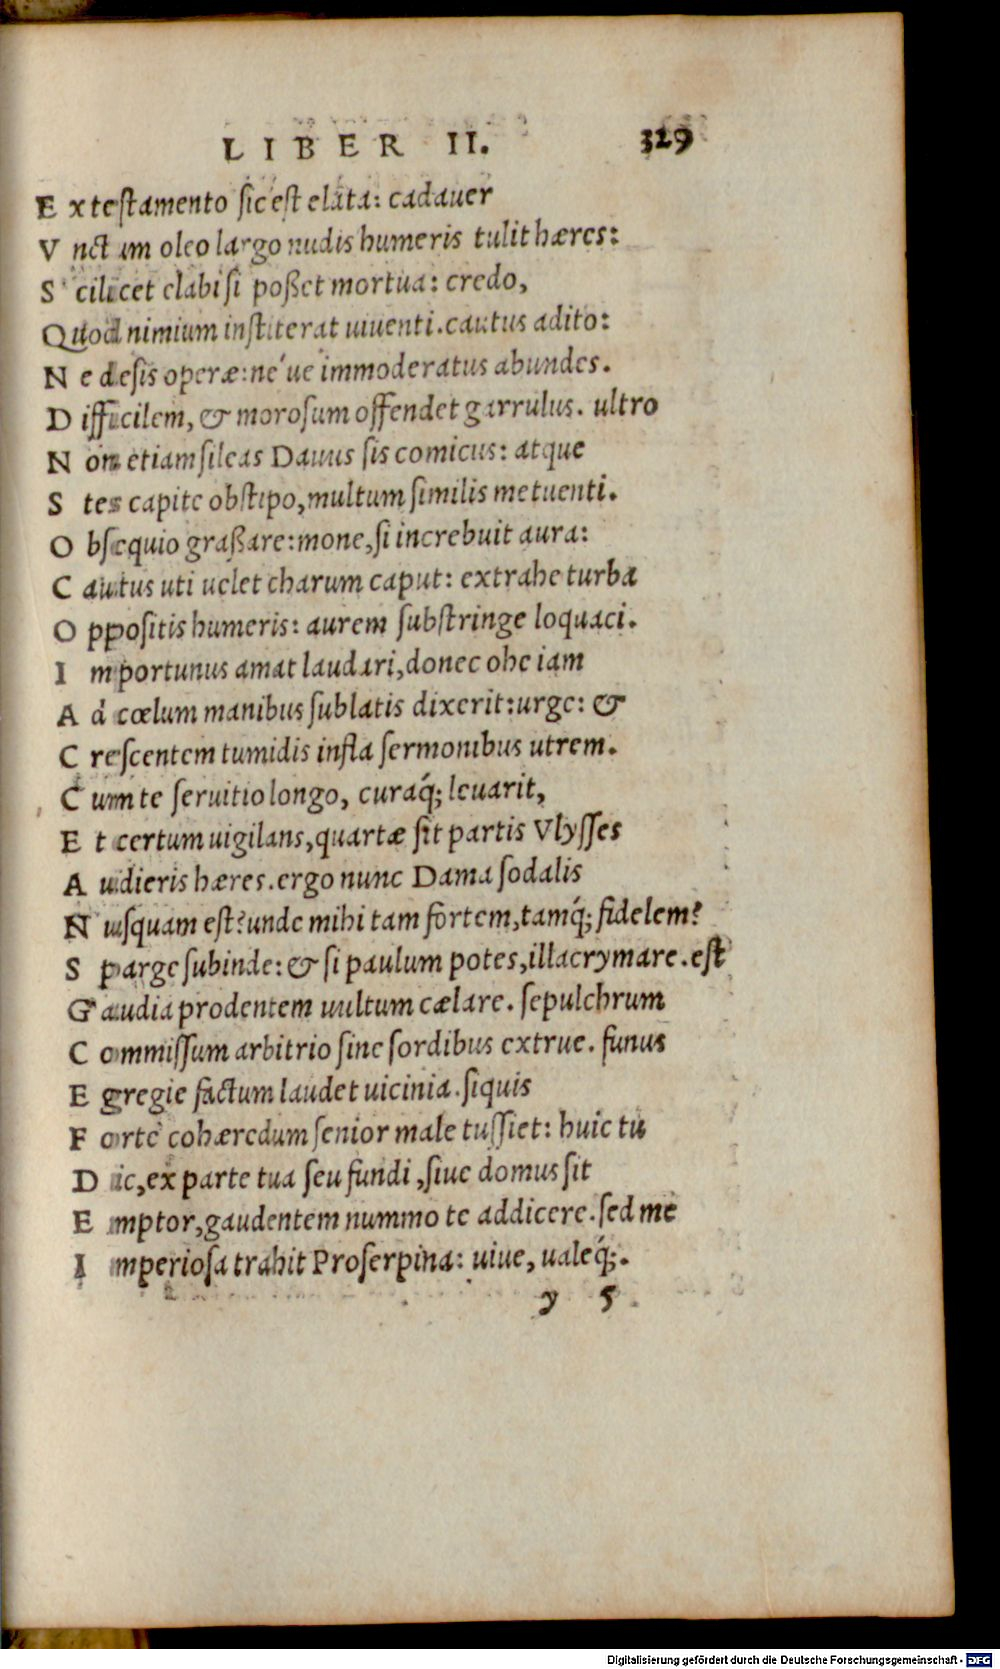 LIBER II. 329
Ex testamento sic est elata: cadauer
Vnctum oleo largo nudis humeris tulit hæres:
Scilicet elabi si poßet mortua: credo,
Quod nimium institerat uiuenti. cautus adito:
Ne desis operæ: né ue immoderatus abundes.
Difficilem, & morosum offendet garrulus. ultro
Non etiam sileas Dauus sis comicus: atque
Stes capite obstipo, multum similis metuenti.
Obsequio graßare: mone, si increbuit aura:
Cautus uti uelet charum caput: extrahe turba
Oppositis humeris: aurem substringe loquaci.
Importunus amat laudari, donec ohe iam
Ad cœlum manibus sublatis dixerit: urge: &
Crescentem tumidis infla sermonibus utrem.
Cum te seruitio longo, curaq́; leuarit,
Et certum uigilans, quartæ sit partis Vlysses
Audieris hæres. ergo nunc Dama sodalis
Nusquam est? unde mihi tam fortem, tamq́; fidelem?
Sparge subinde: & si paulum potes, illacrymare. est
Gaudia prodentem uultum cælare. sepulchrum
Commissum arbitrio sine sordibus extrue. funus
Egregie factum laudet uicinia. siquis
Forte cohæredum senior male tussiet: huic tu
Dic, ex parte tua seu fundi, siue domus sit
Emptor, gaudentem nummo te addicere. sed me
Imperiosa trahit Proserpina: uiue, ualeq́;.
y 5
Digitalisierung gefördert durch die Deutsche Forschungsgemeinschaft - DFG